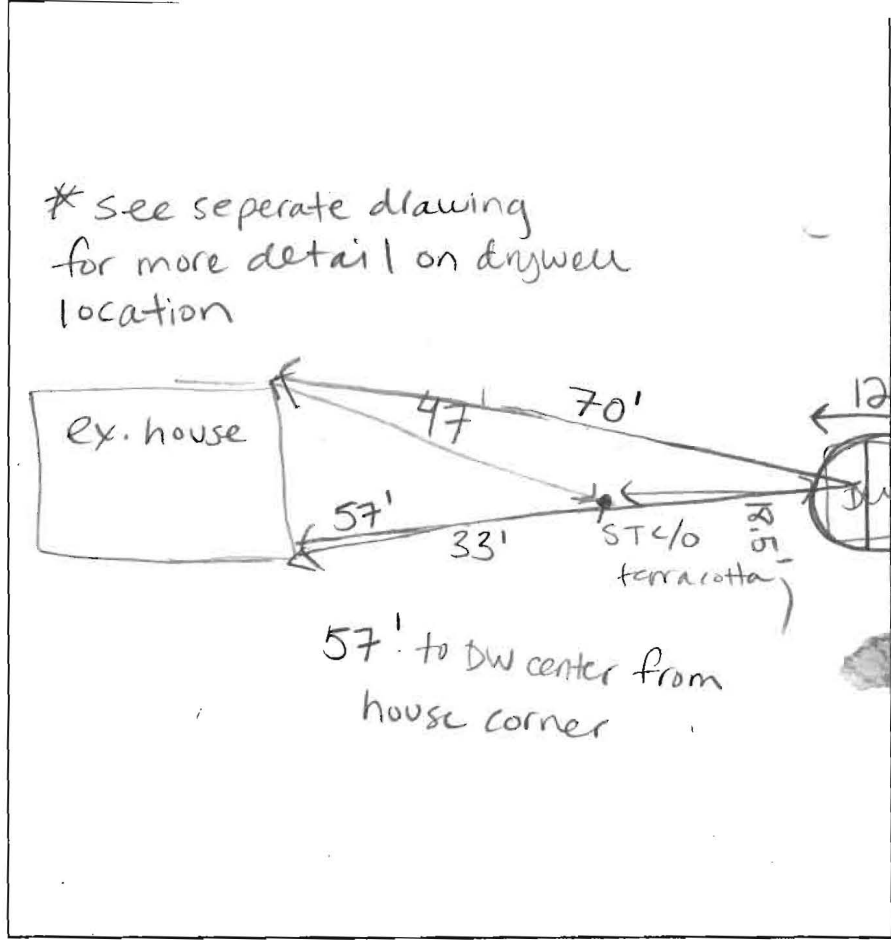 * see seperate drawing
for more detail on drywell
location
12
70'
47'
ex. house
DW
57'
33'
18.5'
ST c/o
terracotta
57' to DW center from
house corner